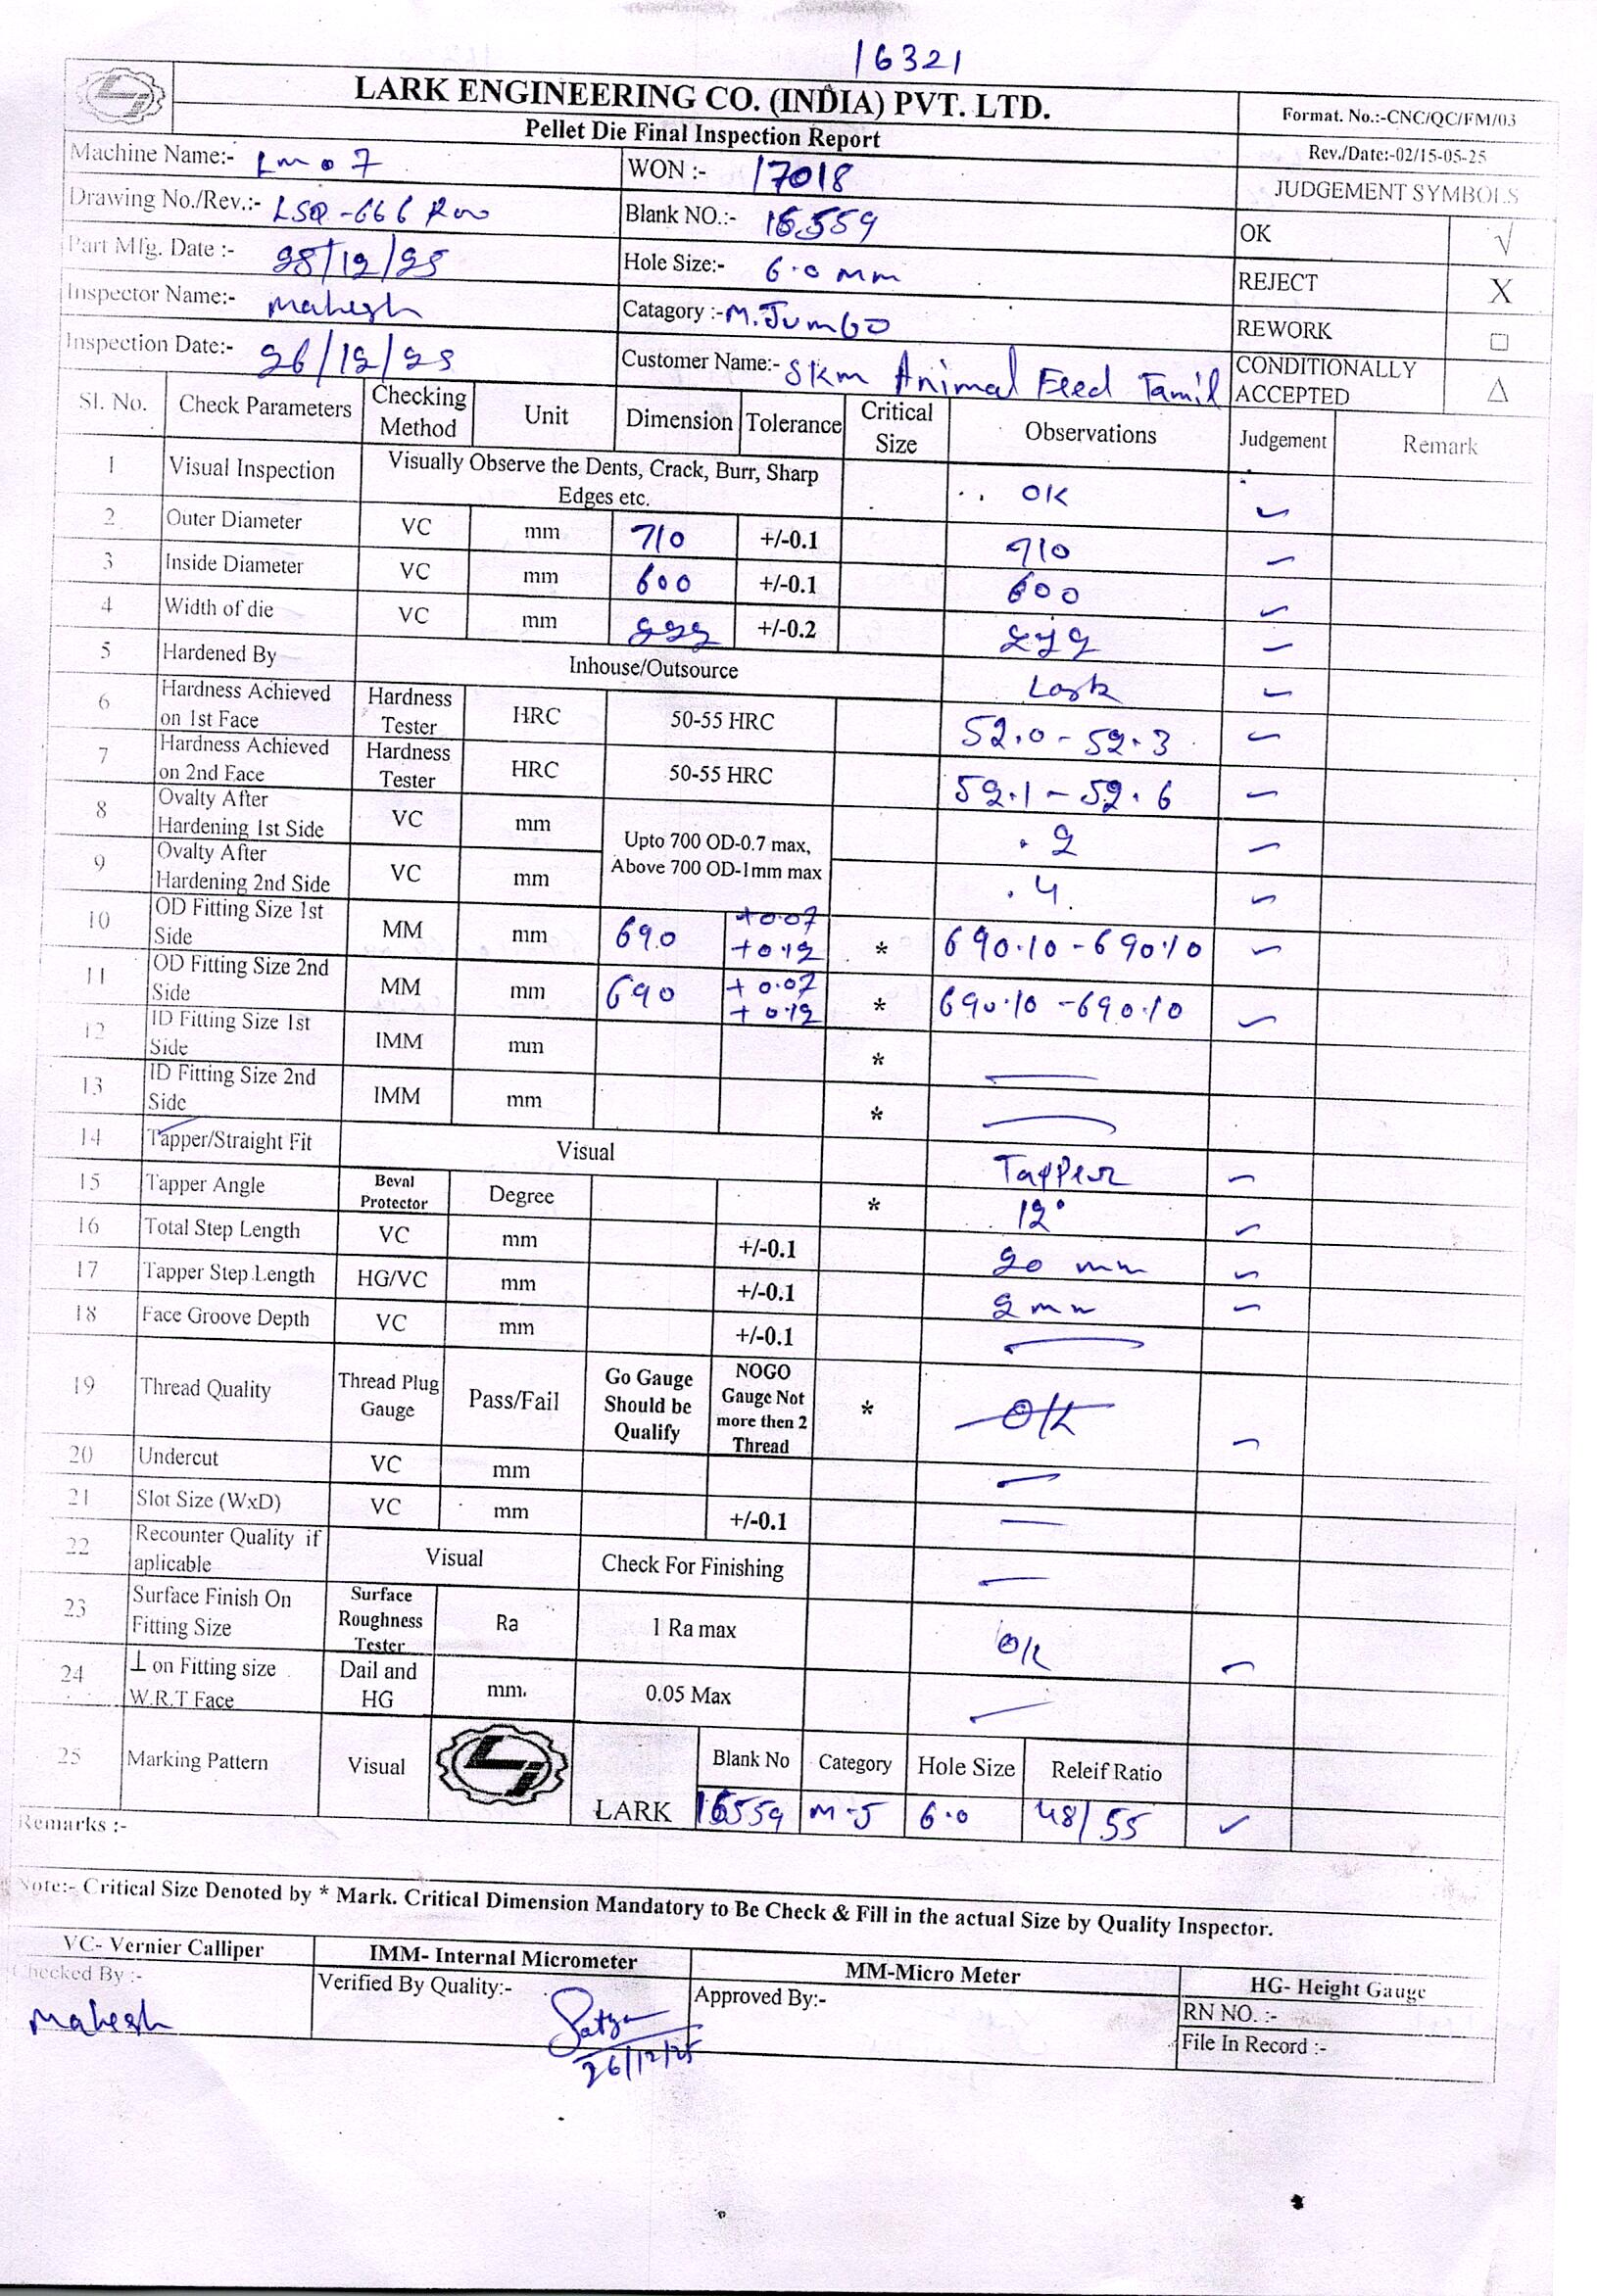 16321
LARK ENGINEERING CO. (INDIA) PVT. LTD.
Format. No.:-CNC/QC/FM/03
Pellet Die Final Inspection Report
Rev./Date:-02/15-05-25
Machine Name:- Lm07 WON :- 17018 JUDGEMENT SYMBOLS
Drawing No./Rev.:- LSQ-666 Blank NO.:- 16559 OK √
Part Mfg. Date :- 25/12/25 Hole Size:- 6.0 mm REJECT X
Inspector Name:- Mahesh Catagory :- M.Jumbo REWORK □
Inspection Date:- 26/12/25 Customer Name:- Skm Animal Feed Tamil CONDITIONALLY ACCEPTED △
Sl. No. Check Parameters Checking Method Unit Dimension Tolerance Critical Size Observations Judgement Remark
1 Visual Inspection Visually Observe the Dents, Crack, Burr, Sharp Edges etc. OK ✓
2 Outer Diameter VC mm 710 +/-0.1 710 ✓
3 Inside Diameter VC mm 600 +/-0.1 600 ✓
4 Width of die VC mm 222 +/-0.2 222 ✓
5 Hardened By Inhouse/Outsource Lark ✓
6 Hardness Achieved on 1st Face Hardness Tester HRC 50-55 HRC 52.0 - 52.3 ✓
7 Hardness Achieved on 2nd Face Hardness Tester HRC 50-55 HRC 52.1 - 52.6 ✓
8 Ovalty After Hardening 1st Side VC mm Upto 700 OD-0.7 max, Above 700 OD-1mm max .2 ✓
9 Ovalty After Hardening 2nd Side VC mm .4 ✓
10 OD Fitting Size 1st Side MM mm 690 +0.07 +0.12 * 690.10 - 690.10 ✓
11 OD Fitting Size 2nd Side MM mm 690 +0.07 +0.12 * 690.10 - 690.10 ✓
12 ID Fitting Size 1st Side IMM mm * —
13 ID Fitting Size 2nd Side IMM mm * —
14 Tapper/Straight Fit Visual Tapper ✓
15 Tapper Angle Beval Protector Degree * 12° ✓
16 Total Step Length VC mm +/-0.1 20 mm ✓
17 Tapper Step Length HG/VC mm +/-0.1 2 mm ✓
18 Face Groove Depth VC mm +/-0.1 —
19 Thread Quality Thread Plug Gauge Pass/Fail Go Gauge Should be Qualify NOGO Gauge Not more then 2 Thread * OK ✓
20 Undercut VC mm —
21 Slot Size (WxD) VC mm +/-0.1 —
22 Recounter Quality if aplicable Visual Check For Finishing —
23 Surface Finish On Fitting Size Surface Roughness Tester Ra 1 Ra max OK ✓
24 ⊥ on Fitting size W.R.T Face Dail and HG mm. 0.05 Max —
25 Marking Pattern Visual LARK Blank No Category Hole Size Releif Ratio
16559 M-J 6.0 48/55 ✓
Remarks :-
Note:- Critical Size Denoted by * Mark. Critical Dimension Mandatory to Be Check & Fill in the actual Size by Quality Inspector.
VC- Vernier Calliper IMM- Internal Micrometer MM-Micro Meter HG- Height Gauge
Checked By :- Verified By Quality:- Approved By:- RN NO. :-
Mahesh Satya File In Record :-
26/12/25